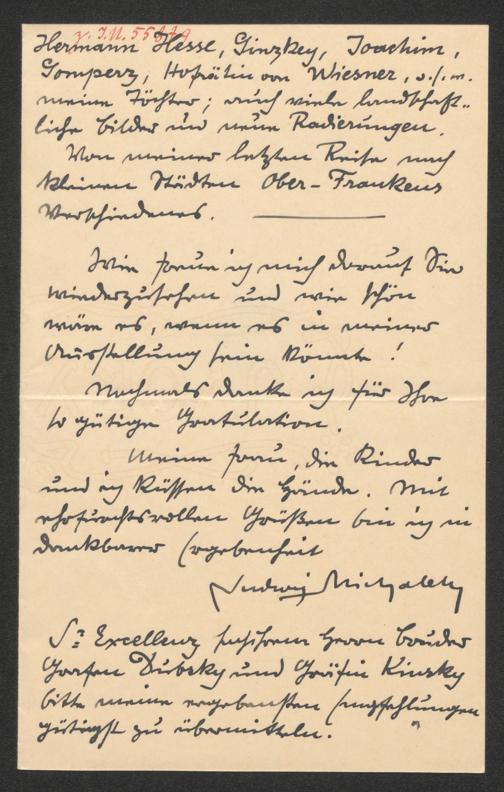 z. J.N. 55379
Hermann Hesse, Ginzkey, Joachim,
Gomperz, Hofrätin von Wiesner, u.s.w.
meine Töchter; auch viele landschaft-
liche Bilder und neue Radierungen.
Von meiner letzten Reise nach
kleinen Städten Ober-Frankens
Verschiedenes.
Wie freue ich mich darauf Sie
wiederzusehen und wie schön
wäre es, wenn es in meiner
Ausstellung sein könnte!
Nochmals danke ich für Ihre
so gütige Gratulation.
Meine Frau, die Kinder
und ich küssen die Hände. Mit
ehrfurchtsvollen Grüßen bin ich in
dankbarer Ergebenheit
Ludwig Michalek
Sr Excellenz Herrn Bruder
Grafen Dubsky und Gräfin Kinsky
bitte meine ergebensten Empfehlungen
gütigst zu übermitteln.